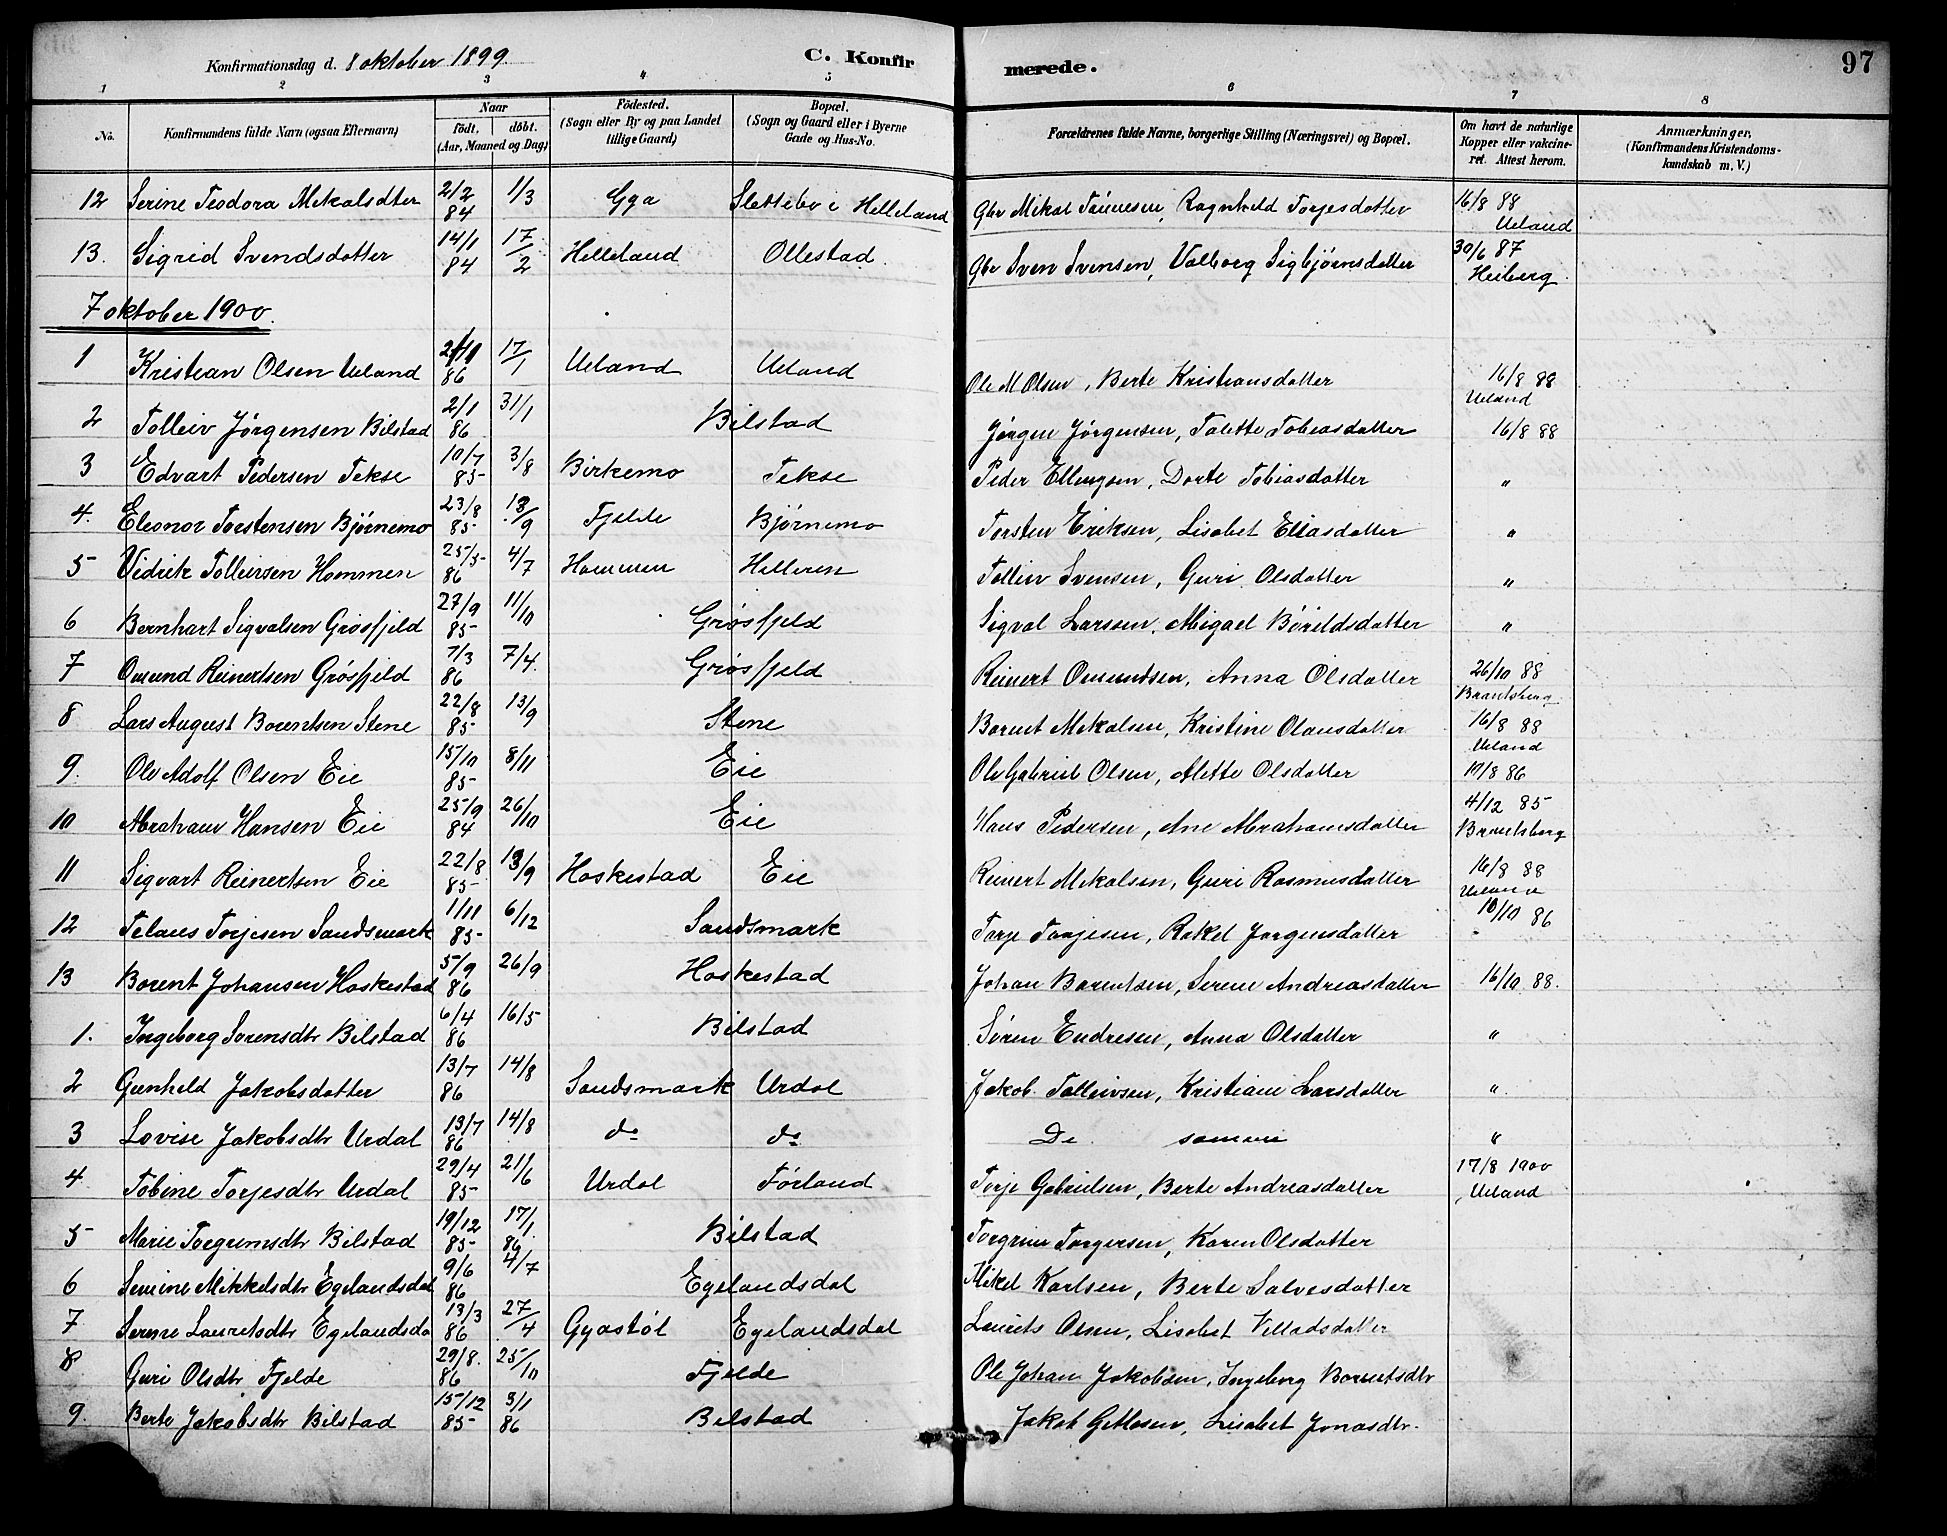 97
Konfirmationsdag d. 8 oktober 1899. C. Konfirmerede.
1 2 3 4 5 6 7 8
No. Konfirmandens fulde Navn (ogsaa Efternavn) Naar født, døbt. (Aar, Maaned og Dag) Fødested. (Sogn eller By og paa Landet tillige Gaard) Bopæl. (Sogn og Gaard eller i Byerne Gade og Hus-No. Forældrenes fulde Navne, borgerlige Stilling (Næringsvei) og Bopæl. Om havt de naturlige Kopper eller vakcineret. Attest herom. Anmærkninger, (Konfirmandens Kristendomskundskab m. V.)
12 Serine Teodora Mikalsdtter 2/2 84 1/3 Gya Slettebø i Helleland Gbr Mikal Tønnesen, Ragnhild Torjesdatter 16/8 88 Ueland
13. Sigrid Svendsdatter 14/1 84 17/2 Helleland Ollestad. Gbr Sven Svensen, Valborg Sigbjørnsdatter 30/6 87 Heiberg.
7 oktober 1900.
1 Kristian Olsen Ueland 86 17/1 Ueland Ueland Ole M Olsen, Berte Kristiansdatter 16/8 88 Ueland
2 Tolleiv Jørgensen Bilstad 2/1 86 31/1 Bilstad Jørgen Jørgensen, Talette Tobiasdatter 16/8 88
3 Edvart Pedersen Tekse 10/7 85 3/8 Birkemo Tekse Peder Ellingsen, Dorte Tobiasdatter "
4. Eleonor Torstensen Bjørnemo 23/8 85 13/9 Fjelde Bjørnemo Torsten Eriksen, Lisabet Eliasdatter "
5 Vidrik Tolleivsen Hommen 25/5 86 4/7 Hommen Helleren Tolleiv Svensen, Guri Olsdatter "
6 Bernhart Sigvalsen Grøsfjeld 27/9 85 11/10 Grøsfjeld Sigval Larsen, Abigael Børildsdatter "
7 Omund Reinertsen Grøsfjeld 7/3 86 7/4. Grøsfjeld Reinert Omundsen, Anna Olsdatter 26/10 88 Brantsberg
8 Lars August Borentsen Stene 22/8 85 13/9 Stene Bornt Mikalsen, Kristine Olausdatter 16/8 88 Ueland
9. Ole Adolf Olsen Eie 15/10 85 8/11 Eie Ole Gabriel Olsen, Alette Olsdatter 19/8 86
10 Abraham Hansen Eie 25/9 84 26/10 Eie Hans Pedersen, Ane Abrahamsdatter 4/12 85 Brantsberg
11 Sigvart Reinertsen Eie 22/8 85 13/9 Haskestad Eie Reinert Mikalsen, Guri Rasmusdatter 16/8 88 Ueland
12 Telaus Torjesen Sandsmark 1/11 85 6/12 Sandsmark Torje Torjesen, Rakel Jørgensdatter 10/10 86
13 Borent Johansen Haskestad 5/9 86 26/9 Haskestad Johan Barentsen, Serene Andreasdatter 16/10 88.
1. Ingeborg Sørensdtr Bilstad 6/4 86 16/5 Bilstad Søren Endresen, Anna Olsdatter "
2 Gunhild Jakobsdatter 13/7 86 14/8 Sandsmark Urdal Jakob Tolleivsen, Kristiane Larsdatter "
3 Lovise Jakobsdtr Urdal 13/7 86 14/8 do do De samme "
4 Tobine Torjesdtr Urdal 29/4 85 21/6 Urdal Førland Torje Gabrielsen, Berte Andreasdatter 17/8 1900, Ueland
5 Marie Torgrimsdtr Bilstad 19/12 85 17/1. 86 Bilstad Torgrim Torgersen, Karen Olsdatter
6 Semine Mikkelsdtr Egelandsdal 9/6 86 4/7 Egelandsdal Mikel Karlsen, Berte Salvesdatter
7 Serene Lauritsdtr Egelandsda 13/3 86 27/4 Gyastøl Egelandsdal Laurits Olsen, Lisabet Villadsdatter
8 Guri Olsdtr Fjelde 29/8. 86 25/10 Fjelde Ole Johan Jakobsen, Ingeborg Borentsdtr
9. Berte Jakobsdtr Bilstad 15/12 85 3/1 86 Bilstad Jakob Getlesen, Lisabet Jonasdtr.